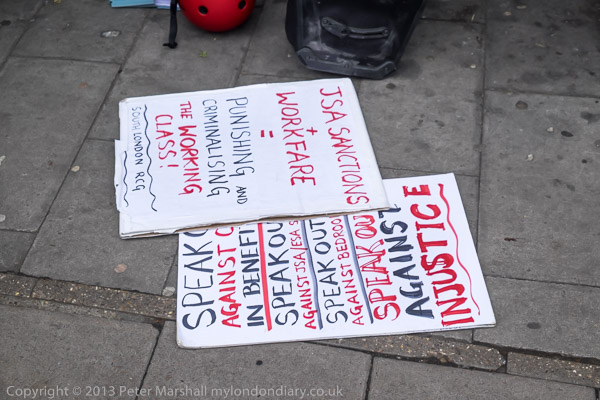 JSA SANCTIONS
+
WORKFARE
=
PUNISHING AND
CRIMINALISING
THE WORKING
CLASS!
SOUTH LONDON RCG
SPEAK
AGAINST
IN BENEFIT
SPEAK OUT
AGAINST JSA/ESA
SPEAK OUT
AGAINST BEDROO
SPEAK OUT
AGAINST
INJUSTICE
Copyright © 2013 Peter Marshall mylondondiary.co.uk